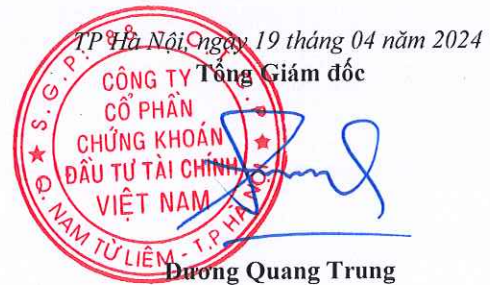 TP Hà Nội, ngày 19 tháng 04 năm 2024
Tổng Giám đốc
CÔNG TY
CỔ PHẦN
CHỨNG KHOÁN
ĐẦU TƯ TÀI CHÍNH
VIỆT NAM
Q. NAM TỪ LIÊM - T.P HÀ NỘI
Dương Quang Trung